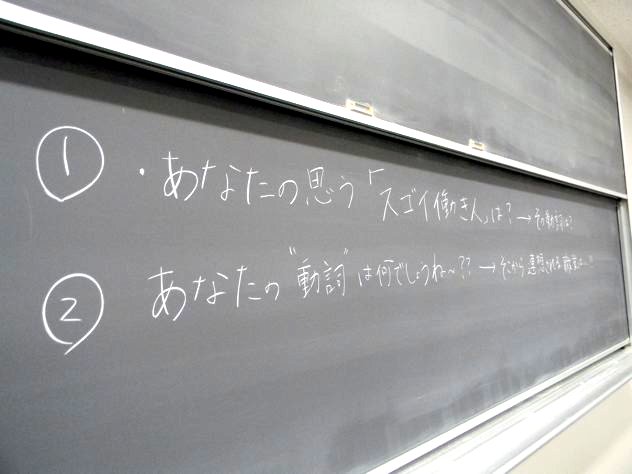 ① ・あなたの思う「スゴイ働き人」は?→その動詞は?
② あなたの"動詞"は何でしょうね〜??→そこから連想される職業は…